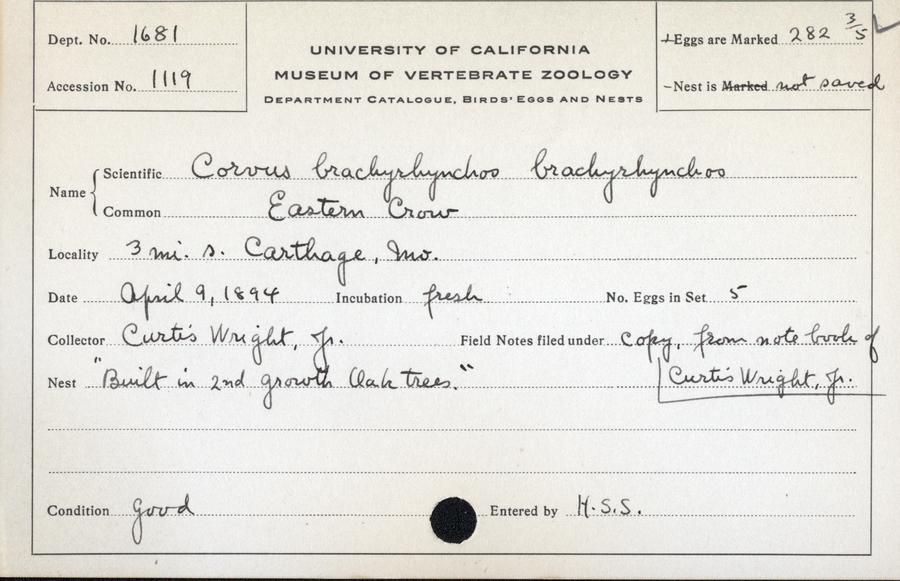 Dept. No. 1681
Accession No. 1119
UNIVERSITY OF CALIFORNIA
MUSEUM OF VERTEBRATE ZOOLOGY
DEPARTMENT CATALOGUE, BIRDS' EGGS AND NESTS
Eggs are Marked 282 3/5
Nest is Marked not saved
Name
Scientific Corvus brachyrhynchos brachyrhynchos
Common Eastern Crow
Locality 3 mi. s. Carthage, Mo.
Date April 9, 1894 Incubation fresh No. Eggs in Set 5
Collector Curtis Wright, Jr. Field Notes filed under copy, from note book of
Nest "Built in 2nd growth Oak trees." Curtis Wright, Jr.
Condition good Entered by H.S.S.